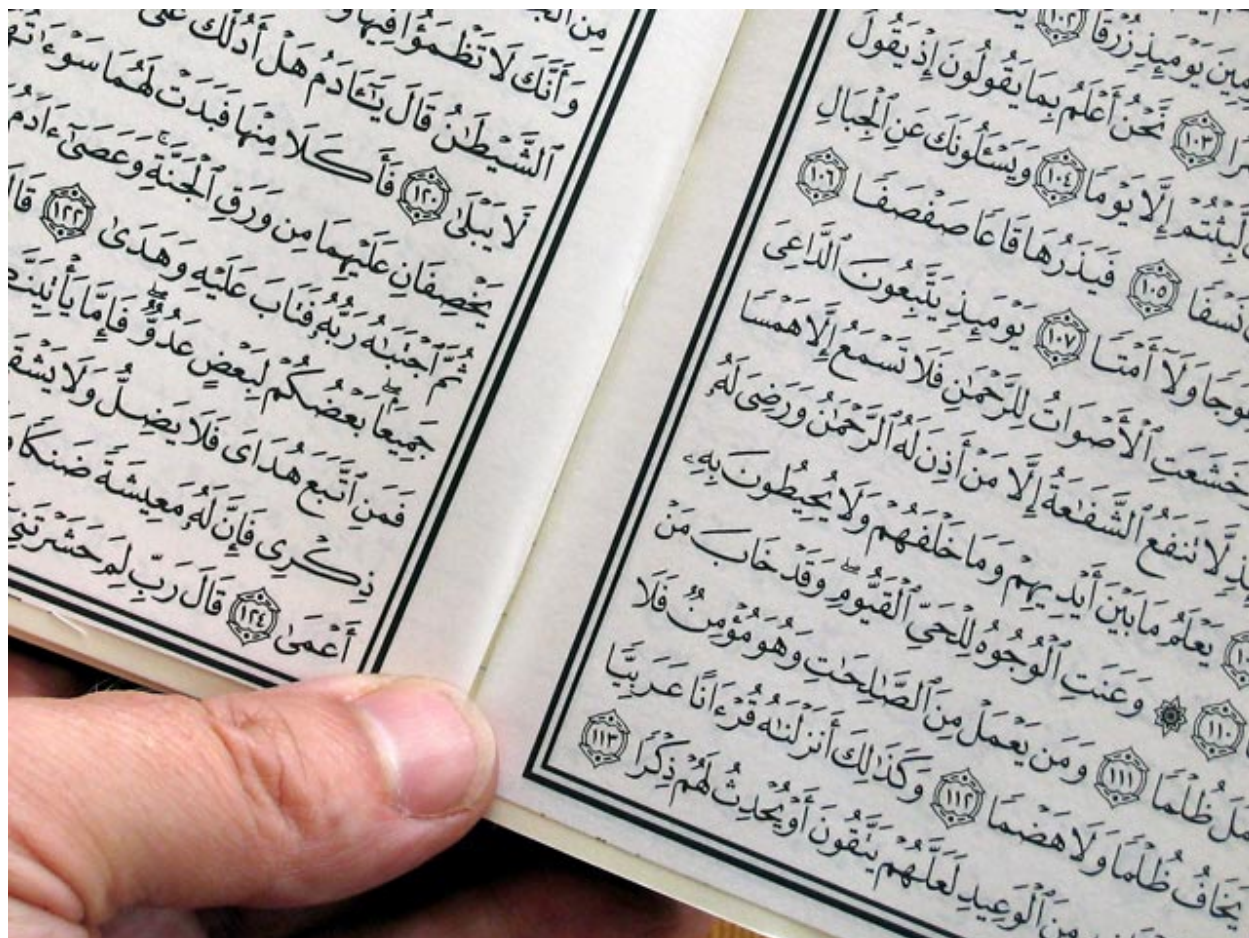 زُرْقًا ١٠٢
١٠٣ نَّحْنُ أَعْلَمُ بِمَا يَقُولُونَ إِذْ يَقُولُ
لَّبِثْتُمْ إِلَّا يَوْمًا ١٠٤ وَيَسْـَٔلُونَكَ عَنِ ٱلْجِبَالِ
نَسْفًا ١٠٥ فَيَذَرُهَا قَاعًا صَفْصَفًا ١٠٦
وَلَآ أَمْتًا ١٠٧ يَوْمَئِذٍ يَتَّبِعُونَ ٱلدَّاعِىَ
خَشَعَتِ ٱلْأَصْوَاتُ لِلرَّحْمَـٰنِ فَلَا تَسْمَعُ إِلَّا هَمْسًا
لَّا تَنفَعُ ٱلشَّفَـٰعَةُ إِلَّا مَنْ أَذِنَ لَهُ ٱلرَّحْمَـٰنُ وَرَضِىَ لَهُۥ
يَعْلَمُ مَا بَيْنَ أَيْدِيهِمْ وَمَا خَلْفَهُمْ وَلَا يُحِيطُونَ بِهِۦ
١١٠ ۞ وَعَنَتِ ٱلْوُجُوهُ لِلْحَىِّ ٱلْقَيُّومِ ۖ وَقَدْ خَابَ مَنْ
ظُلْمًا ١١١ وَمَن يَعْمَلْ مِنَ ٱلصَّـٰلِحَـٰتِ وَهُوَ مُؤْمِنٌ فَلَا
يَخَافُ ظُلْمًا وَلَا هَضْمًا ١١٢ وَكَذَٰلِكَ أَنزَلْنَـٰهُ قُرْءَانًا عَرَبِيًّا
مِنَ ٱلْوَعِيدِ لَعَلَّهُمْ يَتَّقُونَ أَوْ يُحْدِثُ لَهُمْ ذِكْرًا ١١٣
وَأَنَّكَ لَا تَظْمَؤُا۟ فِيهَا
ٱلشَّيْطَـٰنُ قَالَ يَـٰٓـَٔادَمُ هَلْ أَدُلُّكَ عَلَىٰ
لَّا يَبْلَىٰ ١٢٠ فَأَكَلَا مِنْهَا فَبَدَتْ لَهُمَا
يَخْصِفَانِ عَلَيْهِمَا مِن وَرَقِ ٱلْجَنَّةِ ۚ وَعَصَىٰٓ ءَادَمُ
ثُمَّ ٱجْتَبَـٰهُ رَبُّهُۥ فَتَابَ عَلَيْهِ وَهَدَىٰ ١٢٢
جَمِيعًۢا ۖ بَعْضُكُمْ لِبَعْضٍ عَدُوٌّ ۖ فَإِمَّا
فَمَنِ ٱتَّبَعَ هُدَاىَ فَلَا يَضِلُّ وَلَا
ذِكْرِى فَإِنَّ لَهُۥ مَعِيشَةً ضَنكًا
أَعْمَىٰ ١٢٤ قَالَ رَبِّ لِمَ حَشَرْتَنِىٓ